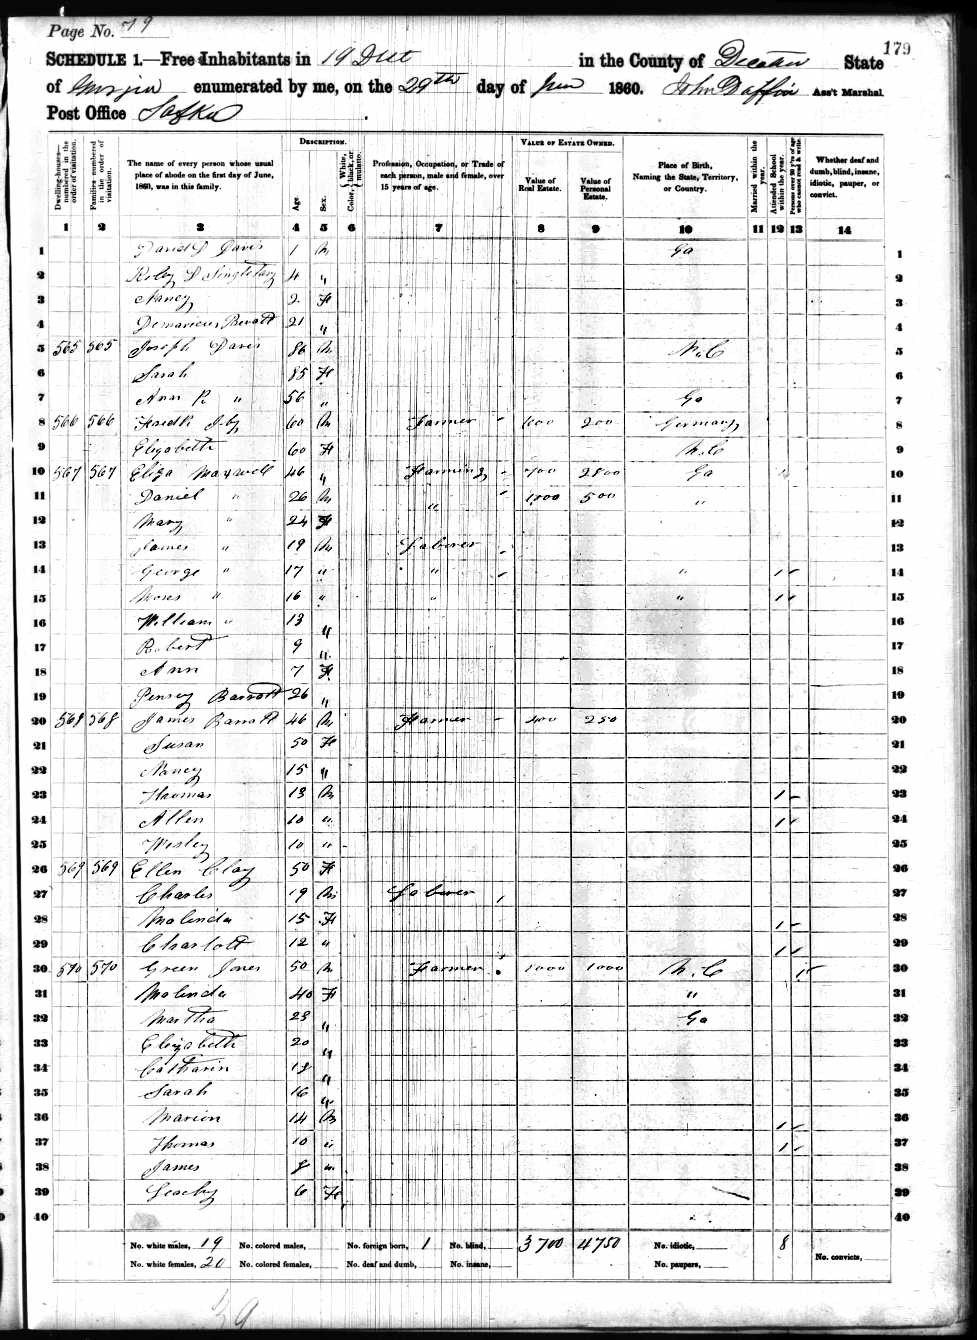 Page No. 79
179
SCHEDULE 1.—Free Inhabitants in 19 Dist in the County of Decatur State
of Georgia enumerated by me, on the 29th day of June 1860. John Daffin Ass't Marshal.
Post Office
Dwelling-houses— numbered in the order of visitation.
Families numbered in the order of visitation.
The name of every person whose usual place of abode on the first day of June, 1860, was in this family.
DESCRIPTION.
Age.
Sex.
Color, { White, black, or mulatto.
Profession, Occupation, or Trade of each person, male and female, over 15 years of age.
VALUE OF ESTATE OWNED.
Value of Real Estate.
Value of Personal Estate.
Place of Birth, Naming the State, Territory, or Country.
Married within the year.
Attended School within the year.
Persons over 20 y'rs of age who cannot read & write.
Whether deaf and dumb, blind, insane, idiotic, pauper, or convict.
1 2 3 4 5 6 7 8 9 10 11 12 13 14
1 David D Davis 1 M Ga 1
2 Singletary 4 " 2
3 Nancy 2 F 3
4 21 " 4
5 565 565 Joseph Davis 86 M N.C 5
6 Sarah 85 F 6
7 Ann R " 56 " Ga 7
8 566 566 60 M Farmer 200 Germany 8
9 Elizabeth 60 F N.C 9
10 567 567 Eliza Maxwell 46 " Farming 2800 Ga 10
11 Daniel " 26 M " 1000 500 " 11
12 Mary " 24 F 12
13 James " 19 M Laborer 13
14 George " 17 " " " 1 14
15 Moses " 16 " " " 1 15
16 William " 13 " 16
17 Robert 9 " 17
18 Ann 7 F 18
19 Pensey Barrott 26 " 19
20 568 568 James Barrott 46 M Farmer 400 250 20
21 Susan 50 F 21
22 Nancy 15 " 22
23 Thomas 13 M 1 23
24 Allen 10 " 1 24
25 Wesley 10 " 25
26 569 569 Ellen Clay 50 F 26
27 Charles 19 M Laborer 27
28 Malinda 15 F 1 28
29 Charlott 12 " 1 29
30 570 570 Green Jones 50 M Farmer 1000 1000 N.C 1 30
31 Malinda 40 F " 31
32 Martha 23 " Ga 32
33 Elizabeth 20 " 33
34 Catharin 18 " 34
35 Sarah 16 " 35
36 Marion 14 M 1 36
37 Thomas 10 " 1 37
38 James 8 " 38
39 6 F 39
40 40
No. white males, 19 No. colored males, No. foreign born, 1 No. blind, 3700 4750 No. idiotic, 8
No. white females, 20 No. colored females, No. deaf and dumb, No. insane, No. paupers, No. convicts,